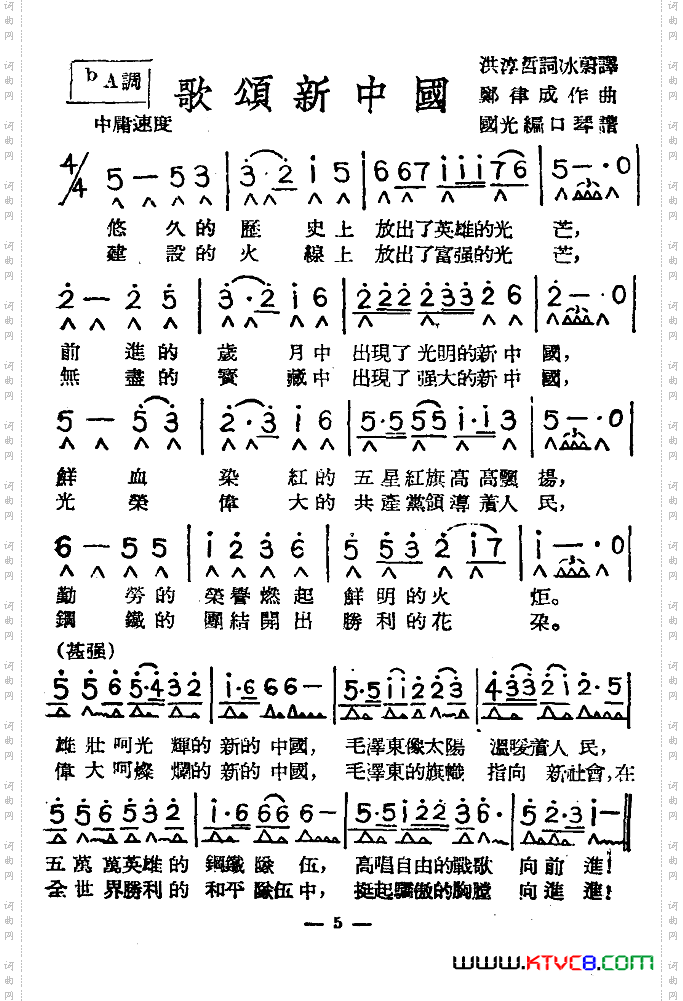 ᵇA調
歌頌新中國
洪淳哲詞冰蔚譯
鄭律成作曲
國光編口琴譜
中庸速度
4/4 5 — 5 3 | 3 · 2 i 5 | 6 67 i i i 76 | 5 — · 0 |
悠久的歷史上放出了英雄的光芒,
建設的火線上放出了富强的光芒,
2 — 2 5 | 3 · 2 i 6 | 2 22 2 33 2 6 | 2 — · 0 |
前進的歲月中出現了光明的新中國,
無盡的寳藏中出現了强大的新中國,
5 — 5 3 | 2 · 3 i 6 | 5 · 5 55 i · i 3 | 5 — · 0 |
鮮血染紅的五星紅旗高高飄揚,
光榮偉大的共產黨領導着人民,
6 — 5 5 | i 2 3 6 | 5 53 2 i7 | i — · 0 |
勤勞的榮譽燃起鮮明的火炬。
鋼鐵的團結開出勝利的花朶。
(甚强)
5 56 5·4 32 | i·6 66 — | 5·5 ii 22 23 | 4 33 22 i 2·5 |
雄壯呵光輝的新的中國, 毛澤東像太陽 溫暖着人民,
偉大呵燦爛的新的中國, 毛澤東的旗幟 指向新社會,在
5 56 5 53 2 | i·6 66 6 — | 5·5 i22 3 6· | 5 2·3 i — ‖
五萬萬英雄的鋼鐵隊伍, 高唱自由的戰歌 向前進!
全世界勝利的和平隊伍中, 挺起驕傲的胸膛 向進進!
— 5 —
www.KTVC8.com
词曲网